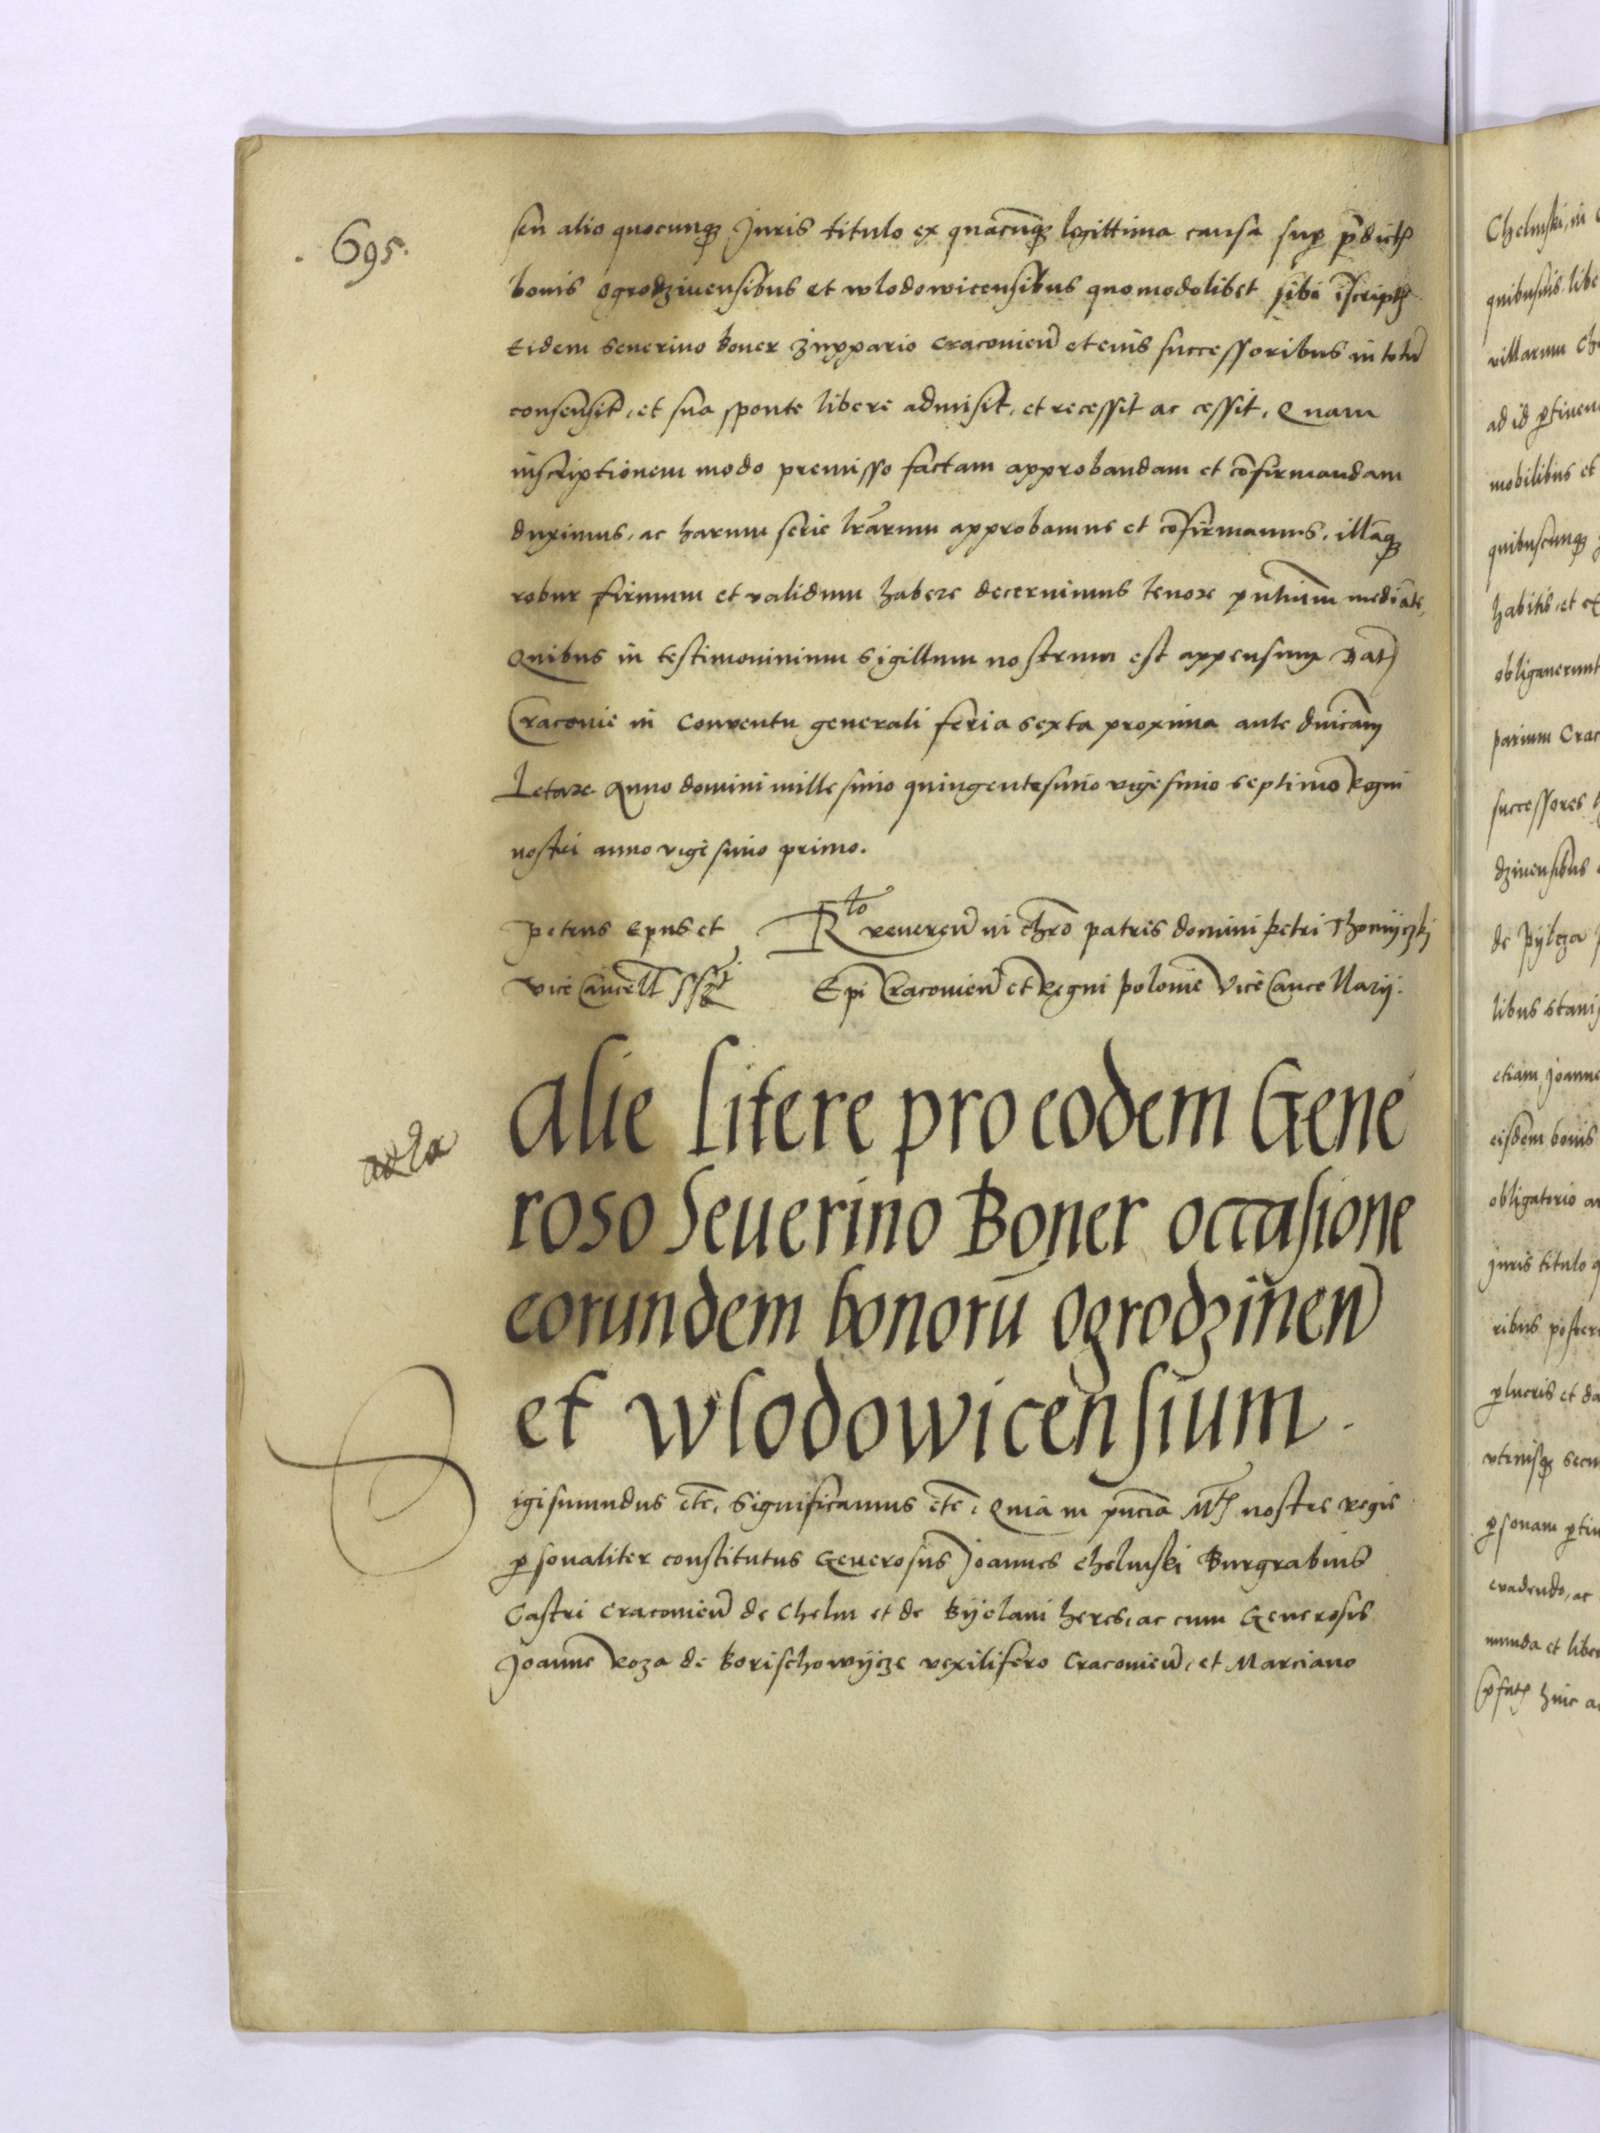 . 695.
seu alio quocunq; Juris titulo ex quacunq; legittima causa sup p̄dict
bonis ogrodzinensibus et wlodowicensibus quomodolibet sibi īscript
Eidem Seuerino Boner zuppario Cracovien̄ et eius successoribus in toto
consensit, et sua sponte libere admisit, et recessit ac cessit, Quam
inscriptionem modo premisso factam approbandam et cōfirmandam
duximus, ac harum serie lr̄arum approbamus et cōfirmamus, illāq;
robur firmum et validum habere decernimus tenore pn̄tium mediāte,
Quibus in testimoninium sigillum nostrum est appensum Dat
Cracovie in Conventu generali feria sexta proxima ante dn̄icam
Letare Anno domini millesimo quingentesimo vigesimo septimo Regni
nostri anno vigesimo primo.
Petrus Ep̄us et
Vice Cancell̄ sst
Rlo reveren̄ in chr̄o patris domini Petri Thomyczki
Ep̄i Cracovien̄ et Regni Polonie Vice Cancellarij.
Alie Litere pro eodem Gene
roso Seuerino Boner occasione
eorundem bonorū Ogrodzinen̄
et Wlodowicensium.
Sigismundus etc̄, Significamus etc̄, Quia in pn̄cia Mt nostre regie
p̱sonaliter constitutus Generosus Joannes Chelmski Burgrabius
Castri Cracovien̄ de Chelm et de Byelani heres, ac cum Generosis
Joanne Roza de Borischowycze vexilifero Cracovien̄, et Marciano
Chelmski, in
quibusuis libe
villarum Ch
ad id p̱tinen
mobilibus et
quibuscunq;
habitis, et ex
obligauerunt
parium Crac
successores
dzinensibus
de Pylcza
libus Stani
etiam Joanne
eisdem bonis
obligatorio
Juris titulo q
ribus poster
p̱lucris et da
vtriusq; secu
p̱sonam p̱tin
evadendo, ac
munda et liber
huic